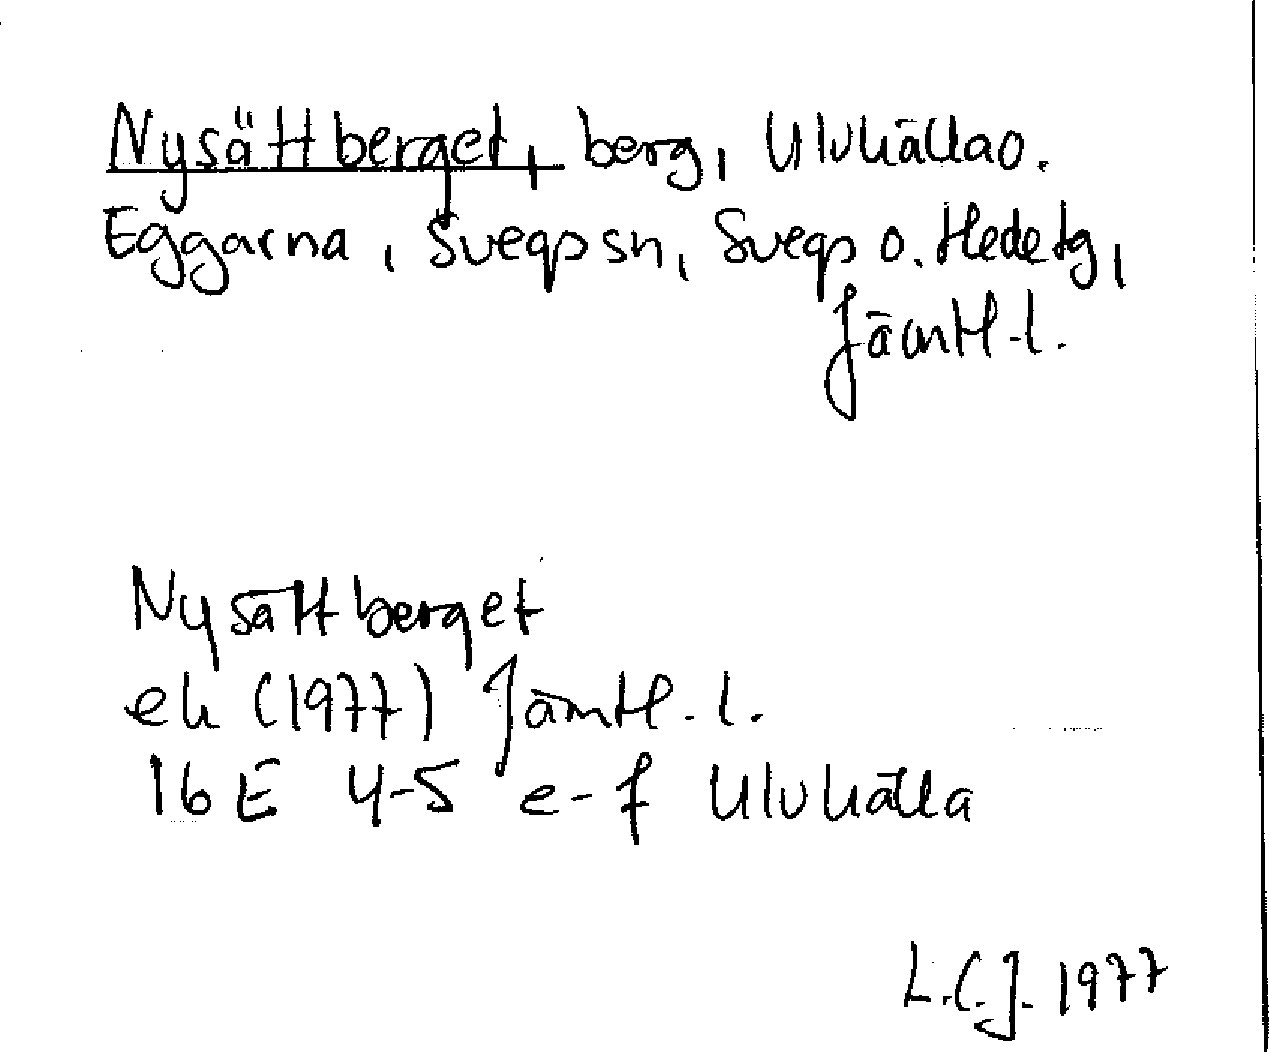 Nysättberget, berg, Ulvkälla o.
Eggarna, Svegs sn, Svegs o. Hede tg,
Jämtl. l.
Nysättberget
ek (1977) Jämtl. l.
16 E 4-5 e-f Ulvkälla
L.C.J. 1977